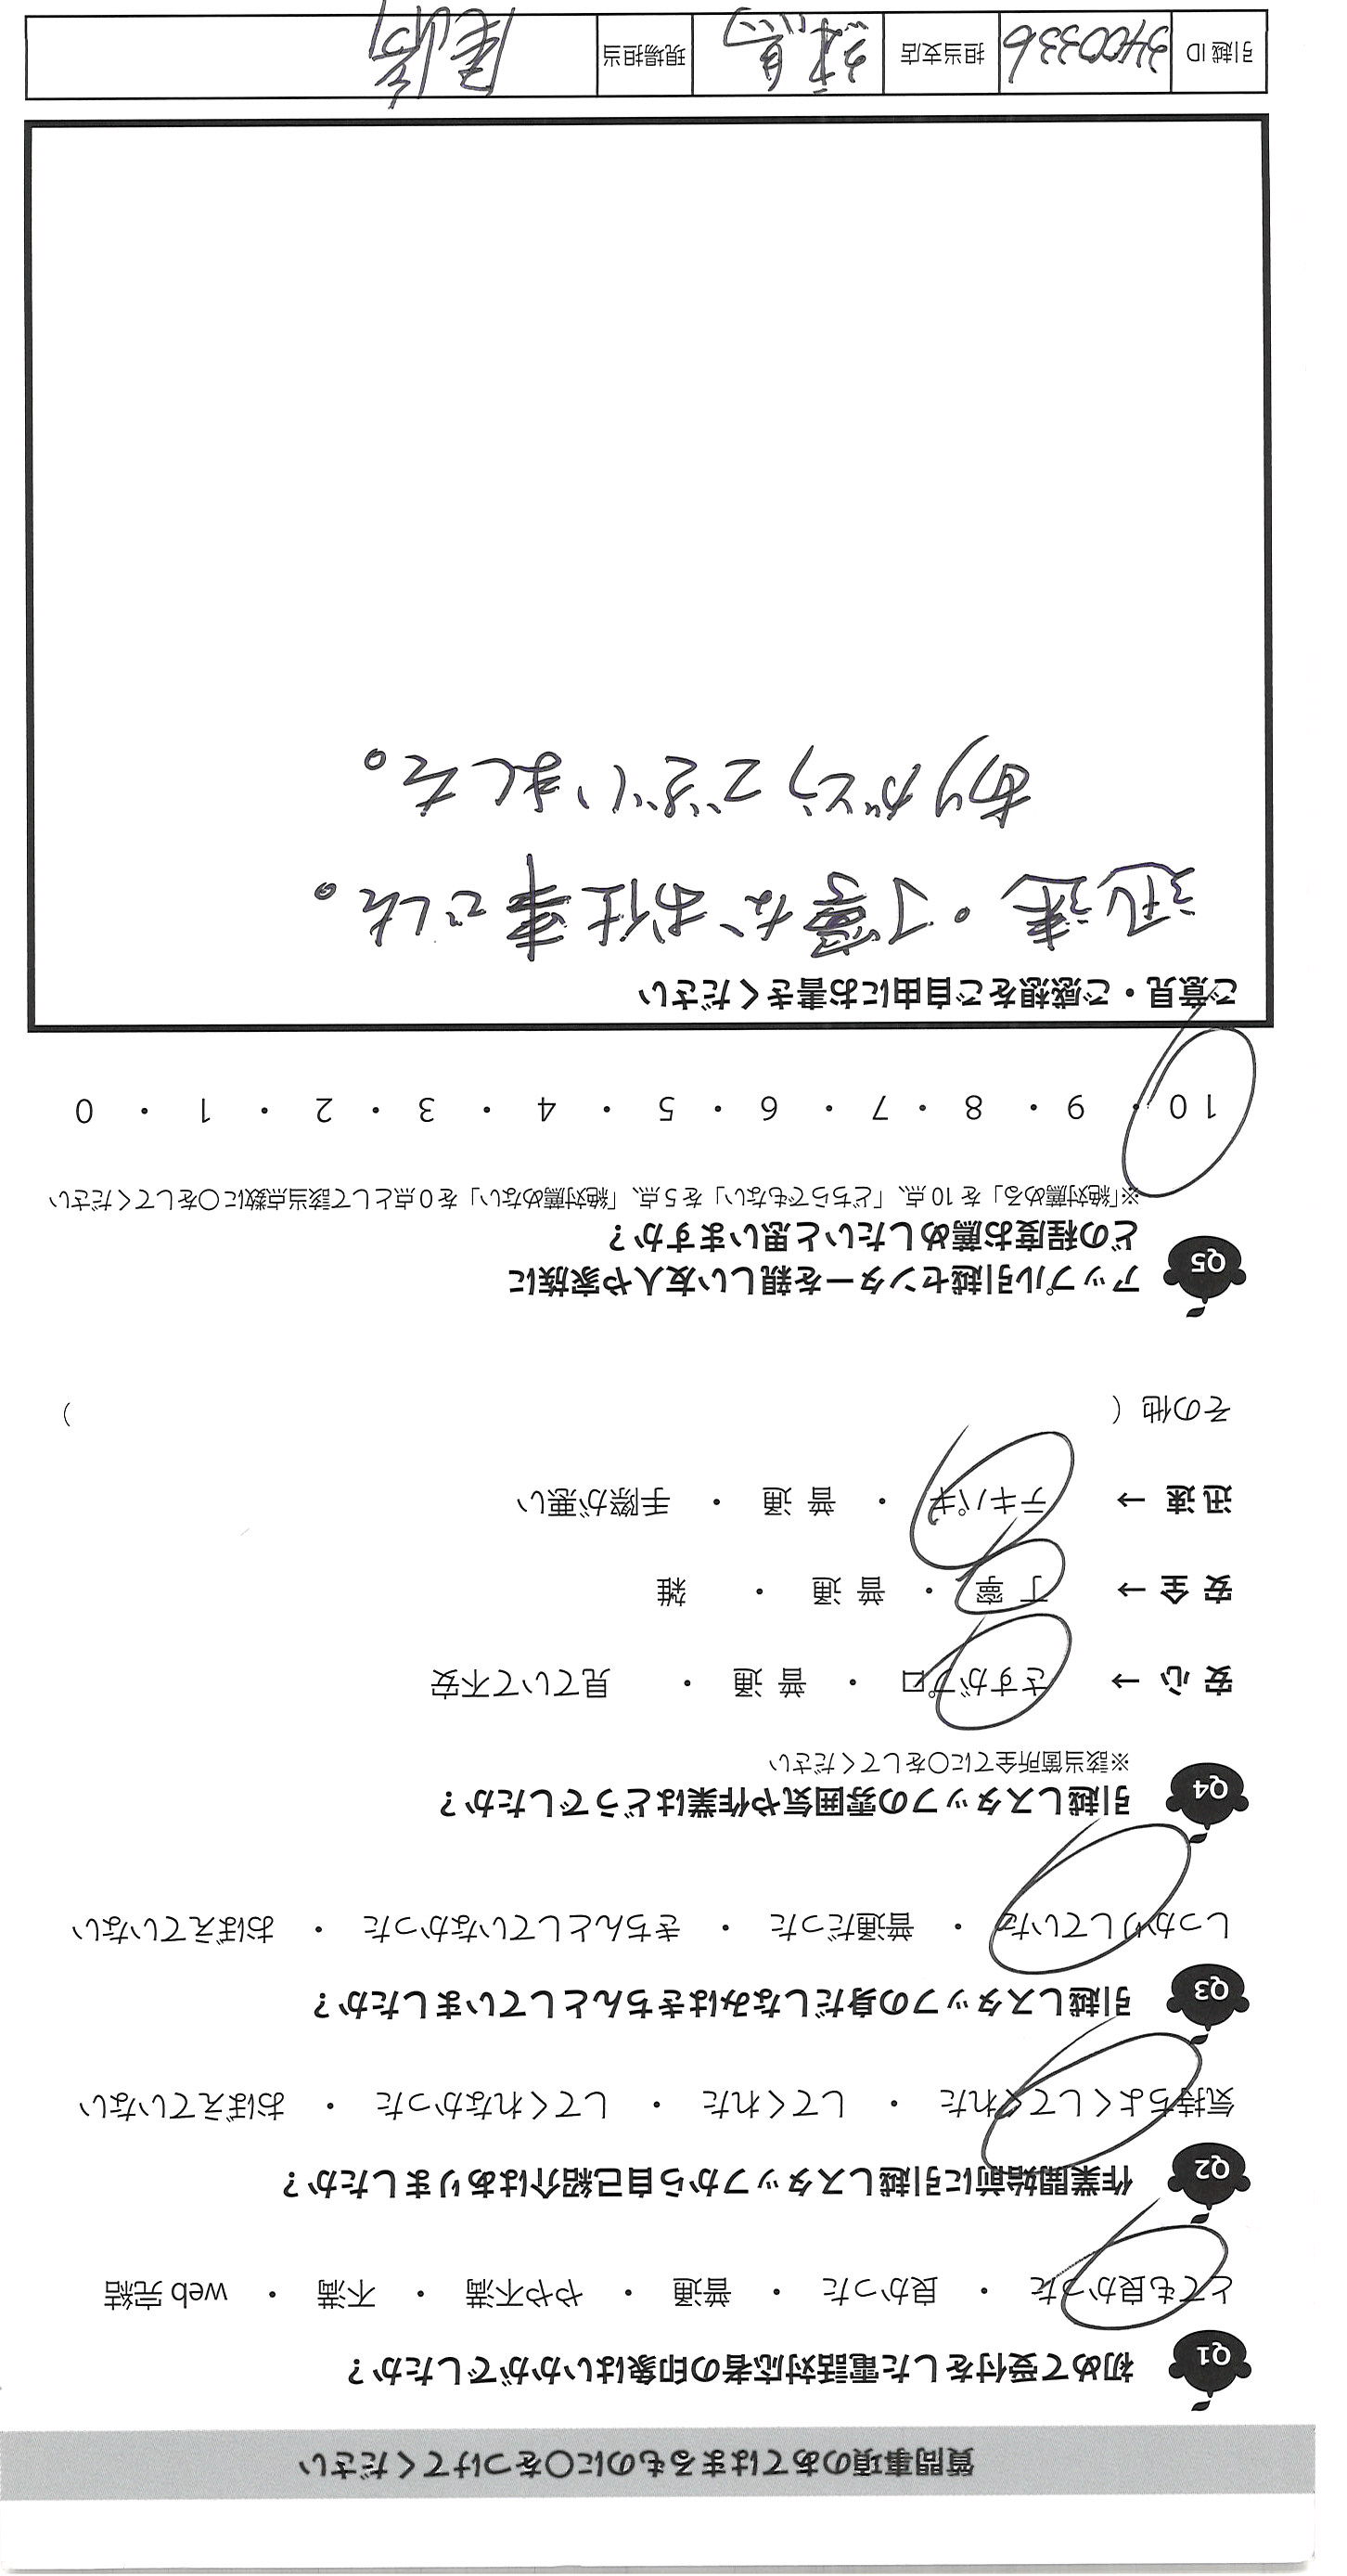 質問事項のあてはまるものに○をつけてください
Q1 初めて受付をした電話対応者の印象はいかがでしたか？
とても良かった ・ 良かった ・ 普通 ・ やや不満 ・ 不満 ・ web 完結
Q2 作業開始前に引越しスタッフから自己紹介はありましたか？
気持ちよくしてくれた ・ してくれた ・ してくれなかった ・ おぼえていない
Q3 引越しスタッフの身だしなみはきちんとしていましたか？
しっかりしていた ・ 普通だった ・ きちんとしていなかった ・ おぼえていない
Q4 引越しスタッフの雰囲気や作業はどうでしたか？
※該当箇所全てに○をしてください
安 心 → さすがプロ ・ 普 通 ・ 見ていて不安
安 全 → 丁 寧 ・ 普 通 ・ 雑
迅 速 → テキパキ ・ 普 通 ・ 手際が悪い
その他（ ）
Q5 アップル引越センターを親しい友人や家族に
どの程度お薦めしたいと思いますか？
※「絶対薦める」を 10 点、「どちらでもない」を 5 点、「絶対薦めない」を 0 点として該当点数に○をしてください
10 ・ 9 ・ 8 ・ 7 ・ 6 ・ 5 ・ 4 ・ 3 ・ 2 ・ 1 ・ 0
ご意見・ご感想をご自由にお書きください
迅速・丁寧なお仕事でした。
ありがとうございました。
引越 ID 3400336 担当支店 練馬 現場担当 尾崎